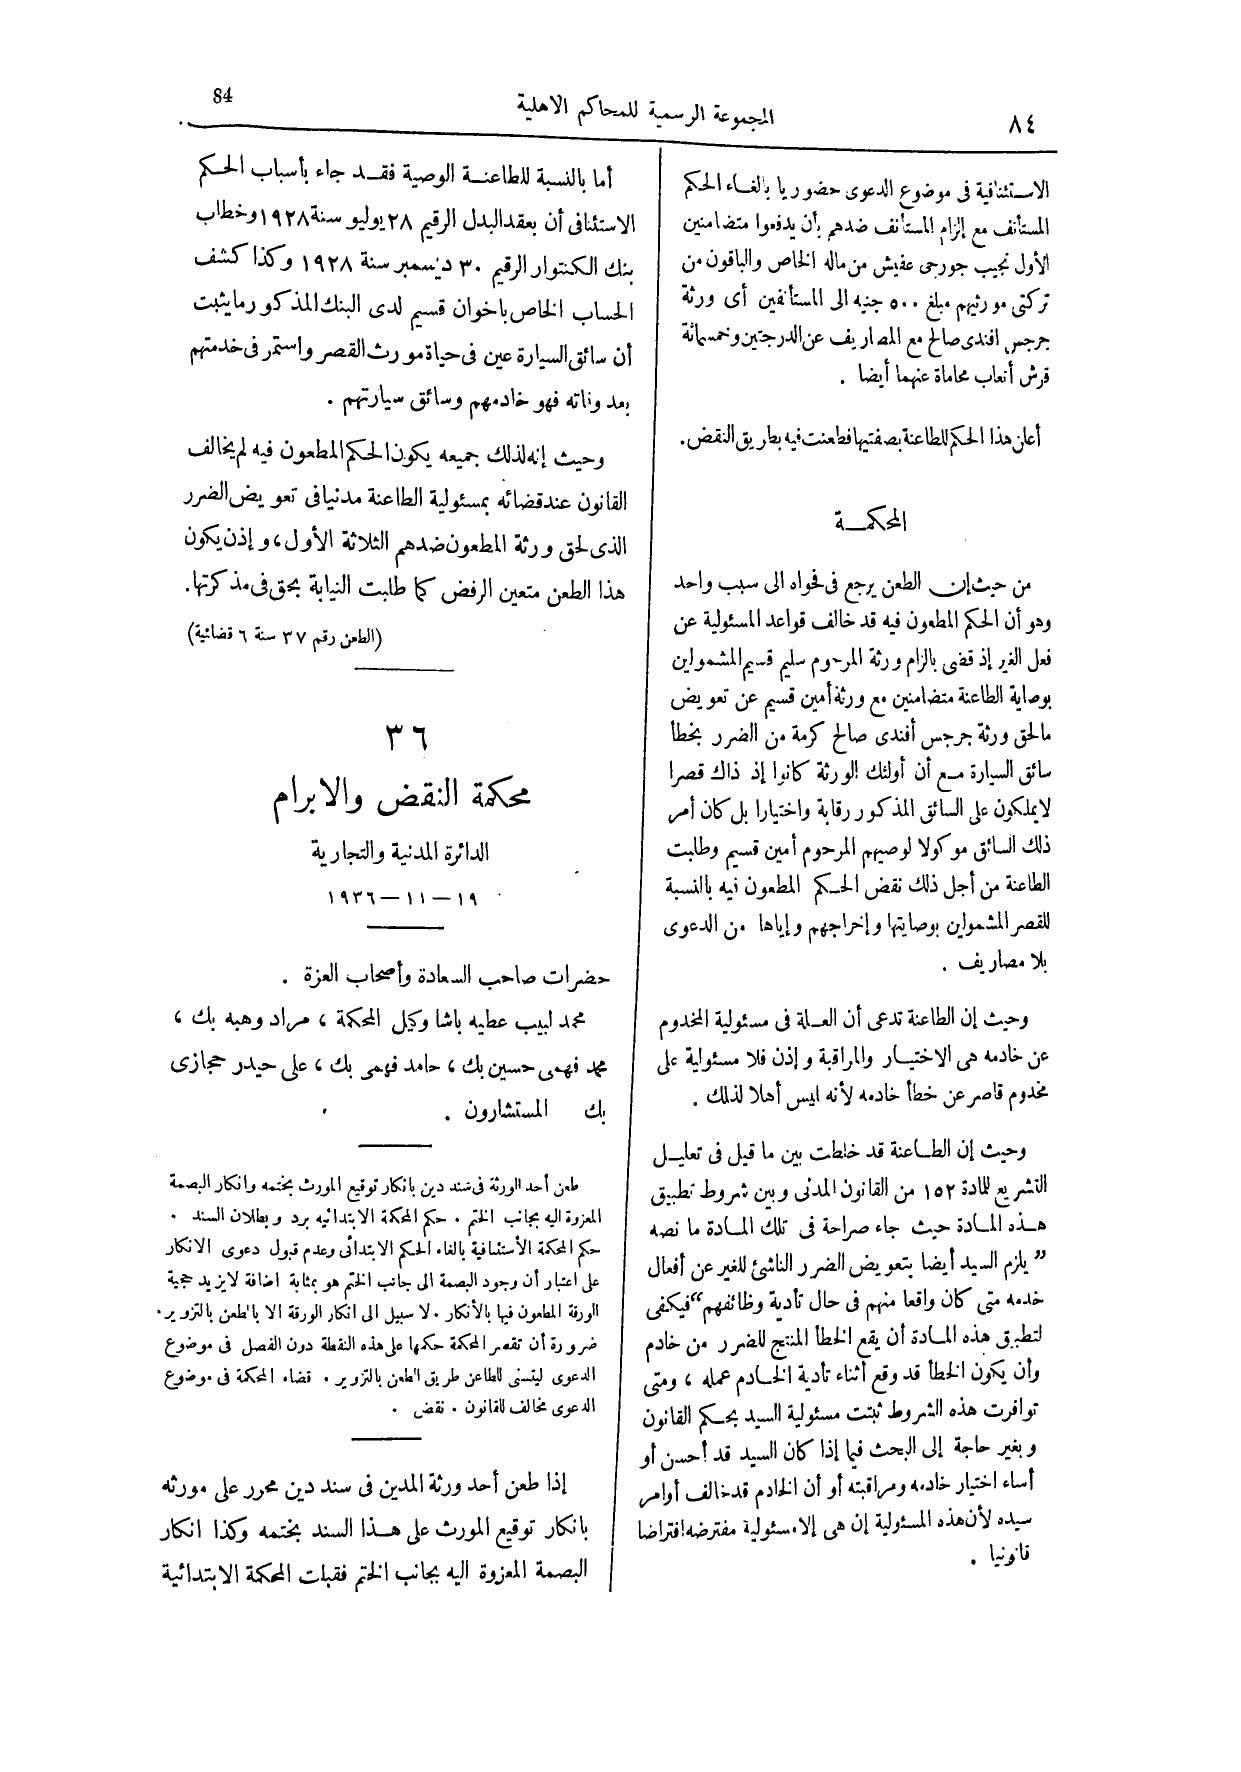 84
المجموعة الرسمية للمحاكم الاهلية
٨٤
الاستئنافية فى موضوع الدعوى حضوريا بالغاء الحكم
المستأنف مع إلزام المستأنف ضدهم بأن يدفعوا متضامنين
الأول نجيب جورجى عفيش من ماله الخاص والباقون من
تركتى مورثيهم مبلغ ٥٠٠ جنيه الى المستأنفين أى ورثة
جرجس افندى صالح مع المصاريف عن الدرجتين وخمسمائة
قرش أتعاب محاماة عنهما أيضا .
أعلن هذا الحكم للطاعنة بصفتيها فطعنت فيه بطريق النقض.
المحكمـــة
من حيث إن الطعن يرجع فى فحواه الى سبب واحد
وهو أن الحكم المطعون فيه قد خالف قواعد المسئولية عن
فعل الغير إذ قضى بالزام ورثة المرحوم سليم قسيم المشمولين
بوصاية الطاعنة متضامنين مع ورثة أمين قسيم عن تعويض
مالحق ورثة جرجس أفندى صالح كرمة من الضرر بخطأ
سائق السيارة مع أن أولئك الورثة كانوا إذ ذاك قصرا
لا يملكون على السائق المذكور رقابة واختيارا بل كان أمر
ذلك السائق موكولا لوصيهم المرحوم أمين قسيم وطلبت
الطاعنة من أجل ذلك نقض الحكم المطعون فيه بالنسبة
للقصر المشمولين بوصايتها وإخراجهم وإياها من الدعوى
بلا مصاريف .
وحيث إن الطاعنة تدعى أن العلة فى مسئولية المخدوم
عن خادمه هى الاختيار والمراقبة وإذن فلا مسئولية على
مخدوم قاصر عن خطأ خادمه لأنه ليس أهلا لذلك .
وحيث إن الطاعنة قد خلطت بين ما قيل فى تعليل
التشريع للمادة ١٥٢ من القانون المدنى وبين شروط تطبيق
هذه المادة حيث جاء صراحة فى تلك المادة ما نصه
” يلزم السيد أيضا بتعويض الضرر الناشئ للغير عن أفعال
خدمه متى كان واقعا منهم فى حال تأدية وظائفهم “ فيكفى
لتطبيق هذه المادة أن يقع الخطأ المنتج للضرر من خادم
وأن يكون الخطأ قد وقع أثناء تأدية الخادم عمله ، ومتى
توافرت هذه الشروط ثبتت مسئولية السيد بحكم القانون
وبغير حاجة إلى البحث فيما إذا كان السيد قد أحسن أو
أساء اختيار خادمه ومراقبته أو أن الخادم قد خالف أوامر
سيده لأن هذه المسئولية إن هى إلا مسئولية مفترضه افتراضا
قانونيا .
أما بالنسبة للطاعنة الوصية فقد جاء بأسباب الحكم
الاستئنافى أن بعقد البدل الرقيم ٢٨ يوليو سنة ١٩٢٨ وخطاب
بنك الكنتوار الرقيم ٣٠ ديسمبر سنة ١٩٢٨ وكذا كشف
الحساب الخاص باخوان قسيم لدى البنك المذكور ما يثبت
أن سائق السيارة عين فى حياة مورث القصر واستمر فى خدمتهم
بعد وفاته فهو خادمهم وسائق سيارتهم .
وحيث إنه لذلك جميعه يكون الحكم المطعون فيه لم يخالف
القانون عند قضائه بمسئولية الطاعنة مدنيا فى تعويض الضرر
الذى لحق ورثة المطعون ضدهم الثلاثة الأول ، وإذن يكون
هذا الطعن متعين الرفض كما طلبت النيابة بحق فى مذكرتها.
(الطعن رقم ٣٧ سنة ٦ قضائية)
٣٦
محكمة النقض والابرام
الدائرة المدنية والتجارية
١٩ — ١١ — ١٩٣٦
حضرات صاحب السعادة وأصحاب العزة .
محمد لبيب عطيه باشا وكيل المحكمة ، مراد وهبه بك ،
محمد فهمى حسين بك ، حامد فهمى بك ، على حيدر حجازى
بك المستشارون .
طعن أحد الورثة فى سند دين بانكار توقيع المورث بختمه وانكار البصمة
المعزوة اليه بجانب الختم . حكم المحكمة الابتدائيه برد وبطلان السند .
حكم المحكمة الأستئنافية بالغاء الحكم الابتدائى وعدم قبول دعوى الانكار
على اعتبار أن وجود البصمة الى جانب الختم هو بمثابة اضافة لا يزيد حجية
الورقة المطعون فيها بالأنكار . لا سبيل الى انكار الورقة الا بالطعن بالتزوير .
ضرورة أن تقصر المحكمة حكمها على هذه النقطة دون الفصل فى موضوع
الدعوى ليتسنى للطاعن طريق الطعن بالتزوير . قضاء المحكمة فى موضوع
الدعوى مخالف للقانون . نقض .
إذا طعن أحد ورثة المدين فى سند دين محرر على مورثه
بانكار توقيع المورث على هذا السند بختمه وكذا انكار
البصمة المعزوة اليه بجانب الختم فقبلت المحكمة الابتدائية